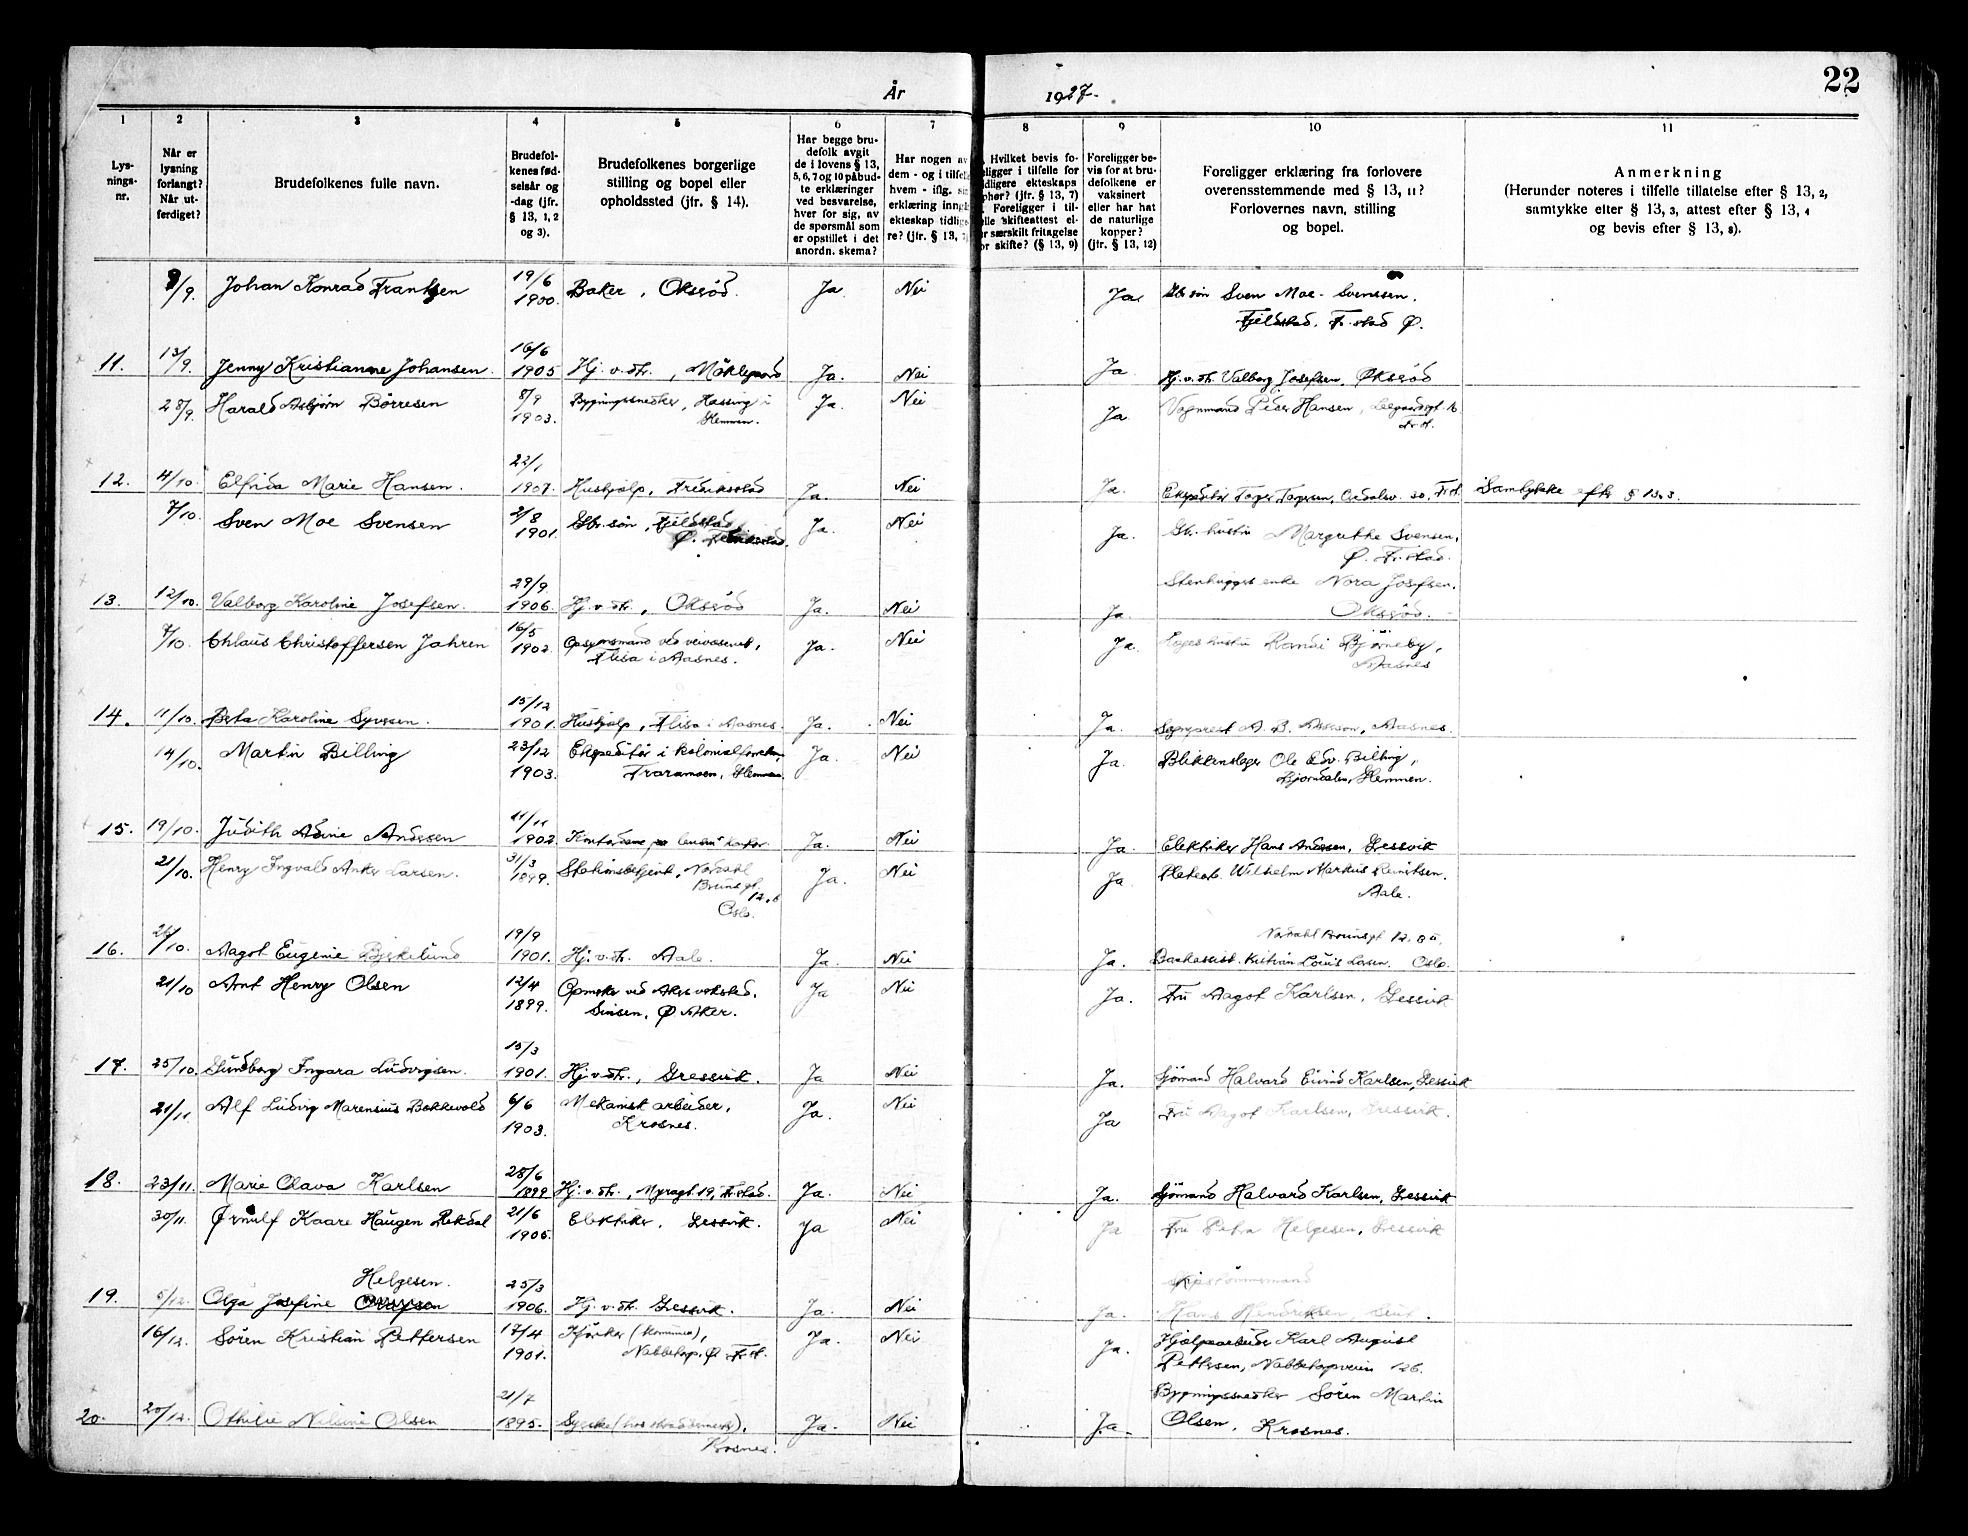 22
År 1927.
1 2 3 4 5 6 7 8 9 10 11
Lys-
nings-
nr.
Når er
lysning
forlangt?
Når ut-
ferdiget?
Brudefolkenes fulle navn.
Brudefol-
kenes fød-
selsår og
-dag (jfr.
§ 13, 1, 2
og 3).
Brudefolkenes borgerlige
stilling og bopel eller
opholdssted (jfr. § 14).
Har begge bru-
defolk avgit
de i lovens § 13,
5, 6, 7 og 10 påbud-
te erklæringer
ved besvarelse,
hver for sig, av
de spørsmål som
er opstillet i det
anordn. skema?
Har nogen av
dem - og i tilfelle
hvem - iflg. sin
erklæring inngå
ekteskap tidlig
re? (jfr. § 13, 7
Hvilket bevis fo-
religger i tilfelle for
idligere ekteskaps
phør? (jfr. § 13, 7)
Foreligger i til-
elle skifteattest el-
r særskilt fritagelse
or skifte? (§ 13, 9)
Foreligger be-
vis for at bru-
defolkene er
vaksinert
eller har hat
de naturlige
kopper?
(jfr. § 13, 12)
Foreligger erklæring fra forlovere
overensstemmende med § 13, 11?
Forlovernes navn, stilling
og bopel.
Anmerkning
(Herunder noteres i tilfelle tillatelse efter § 13, 2,
samtykke efter § 13, 3, attest efter § 13, 4
og bevis efter § 13, 8).
9/9. Johan Konrad Frantsen 19/6 1900. Baker, Oksrød. Ja Nei Ja Gbr.søn Sven Moe-Svenssen.
Fjeldstad. Fr.stad Ø.
11. 13/9. Jenny Kristianne Johansen. 16/6 1905 Hj.v.dtr., Möklegaard Ja. Nei Ja. Hj.v.dtr. Valborg Josefsen, Oksrød
28/9. Harald Asbjörn Börresen 8/9 1903. Bygningssnedker, Hassing i Ja. Nei Ja Vognmand Peder Hansen,
Glemmen.
12. 4/10. Elfrida Marie Hansen. 22/1 1907. Hushjælp, Fredriksstad Ja. Nei Ja. Ekspeditör Tager Tagesen, 30, Fr.st. Samtykke efter § 13.3.
7/10. Sven Moe Svensen 2/8 1901. Gbr.søn, Fjeldstad Ja. Nei Ja. Gbr. hustru Margrethe Svensen,
Ø. Fredriksstad. Ø. Fr.stad.
13. 12/10. Valborg Karoline Josefsen. 29/9 1906. Hj.v.dtr., Oksrød Ja. Nei Ja Stenhugger enke Nora Josefsen.
Oksrød.
7/10. Chlaus Christoffersen Jahren 16/5 1902. Opsynsmand ved veivæsenet, Ja. Nei Ja. hustru Randi Bjørneby,
Flisa i Aasnes. Aasnes
14. 11/10. Berta Karoline Syversen. 15/12 1901. Hushjælp, Flisa i Aasnes. Ja. Nei Ja. Sogneprest A. B. Aasnes.
14/10. Martin Billing 23/12 1903. Ekspeditör i kolonialforretn., Ja. Nei Ja. Blikkenslager Ole Edv. Billing,
Traramsen, Glemmen. Bjørndalen, Glemmen.
15. 19/10. Judith Adine Andresen 11/11 1902. Ja. Nei Ja. Elektriker Hans Andresen, Gressvik
21/10. Henry Ingvald Anker Larsen. 31/3 1899. Stationsbetjent, Nordahl Ja. Nei Ja Wilhelm Markus
Brunsgt. 12.b Aale.
Oslo.
16. 26/10. Aagot Eugenie Bjerkelund 19/9 1901. Hj.v.dtr. Aale. Ja. Nei Ja. Nordahl Brunsgt 12.
Kristian Louis Larsen. Oslo.
21/10 Arnt Henry Olsen 12/4 1899. ved Akers veksted, Ja Nei Ja. Fru Aagot Karlsen, Gressvik
Sinsen, Ø Aker.
17. 25/10. Gundborg Ingara Ludvigsen. 15/3 1901. Hj.v.dtr., Gressvik. Ja Nei Ja. Sjömand Halvard Eivind Karlsen, Gressvik
21/11. Alf Ludvig Marensius Bekkevold 6/6 1903. Mekanisk arbeider, Ja. Nei Ja Fru Aagot Karlsen, Gressvik.
Krosnes.
18. 23/11. Marie Olava Karlsen 28/6 1899 Hj.v.dtr., Myragt 19, Fr.stad. Ja. Nei Ja. Sjömand Halvard Karlsen, Gressvik
30/11. Ørnulf Kaare Haugen Rekdal 21/6 1905. Elektriker, Gressvik. Ja Nei Ja Fru Petra Helgesen, Gressvik
19. 5/12. Olga Josefine Olafsen Helgesen. 25/3 1906. Hj.v.dtr. Gressvik. Ja. Nei Ja. Skipstömmermand
Hans Hendriksen
16/12. Sören Kristian Pettersen 17/4 1901. Kjörer (kommunen), Ja. Nei Ja. Hjælpearbeider Karl August
Nabbetorp, Ø. Fr.st. Pettersen, Nabbetorpveien 126.
20. 20/12. Othilie Nilsine Olsen 21/7 1895. Syerske (hos skreddermester), Ja. Nei Ja. Bygningssnedker Sören Martin
Krosnes. Olsen, Krosnes.